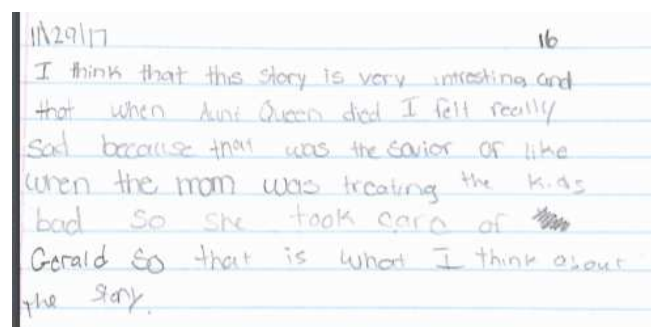 11/29/17 16
I think that this story is very intresting and
that when Aunt Queen died I felt really
sad because that was the savior or like
when the mom was treating the kids
bad so she took care of
Gerald so that is what I think about
the story.